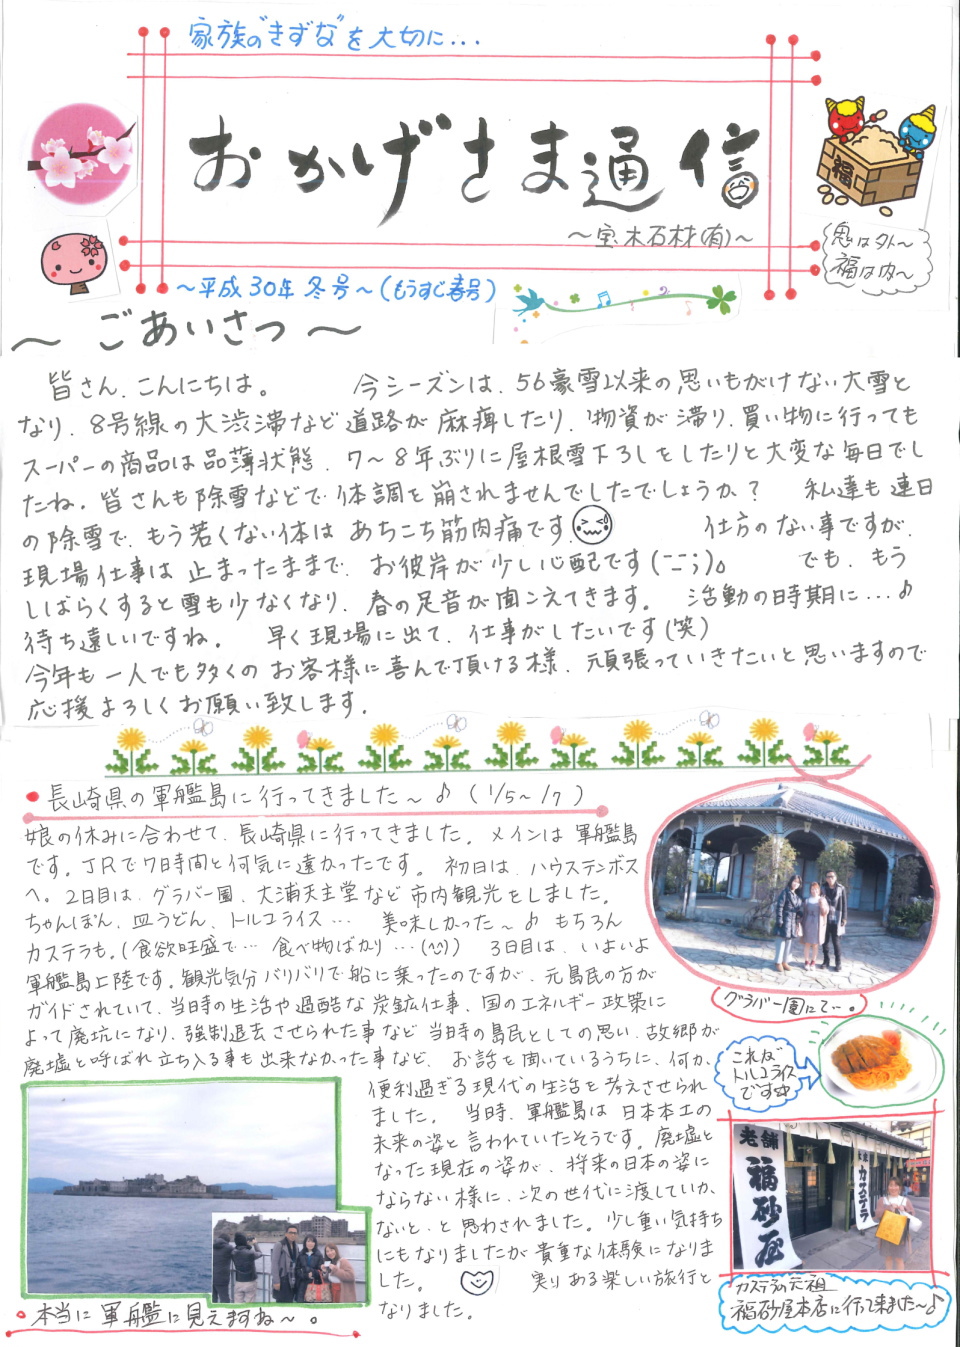 家族の"きずな"を大切に...
おかげさま通信
～宝木石材(有)～
福
鬼は外～
福は内～
～平成30年 冬号～(もうすぐ春号)
～ごあいさつ～
皆さん、こんにちは。 今シーズンは、56豪雪以来の思いもがけない大雪と
なり、8号線の大渋滞など道路が麻痺したり、物資が滞り、買い物に行っても
スーパーの商品は品薄状態、7～8年ぶりに屋根雪下ろしをしたりと大変な毎日でし
たね。皆さんも除雪などで体調を崩されませんでしたでしょうか? 私達も連日
の除雪で、もう若くない体はあちこち筋肉痛です。 仕方のない事ですが、
現場仕事は止まったままで、お彼岸が少し心配です(-_-;)。 でも、もう
しばらくすると雪も少なくなり、春の足音が聞こえてきます。 活動の時期に...♪
待ち遠しいですね。 早く現場に出て、仕事がしたいです(笑)
今年も一人でも多くのお客様に喜んで頂ける様、頑張っていきたいと思いますので
応援よろしくお願い致します。
・長崎県の軍艦島に行ってきました～♪(1/5～1/7)
娘の休みに合わせて、長崎県に行ってきました。メインは軍艦島
です。JRで7時間と何気に遠かったです。初日は、ハウステンボス
へ。2日目は、グラバー園、大浦天主堂など市内観光をしました。
ちゃんぽん、皿うどん、トルコライス... 美味しかった～♪ もちろん
カステラも。(食欲旺盛で... 食べ物ばかり...(^^)) 3日目は、いよいよ
軍艦島上陸です。観光気分バリバリで船に乗ったのですが、元島民の方が
ガイドされていて、当時の生活や過酷な炭鉱仕事、国のエネルギー政策に
よって廃坑になり、強制退去させられた事など当時の島民としての思い、故郷が
廃墟と呼ばれ立ち入る事も出来なかった事など、お話を聞いているうちに、何か、
便利過ぎる現代の生活を考えさせられ
ました。 当時、軍艦島は日本本土の
未来の姿と言われていたそうです。廃墟と
なった現在の姿が、将来の日本の姿に
ならない様に、次の世代に渡していか
ないと、と思わされました。少し重い気持ち
にもなりましたが貴重な体験になりま
した。 実りある楽しい旅行と
なりました。
グラバー園にて...。
これが
トルコライス
です
老舗
福砂屋
カステラ
カステラの元祖
福砂屋本店に行って来ました～♪
・本当に軍艦に見えますね～。